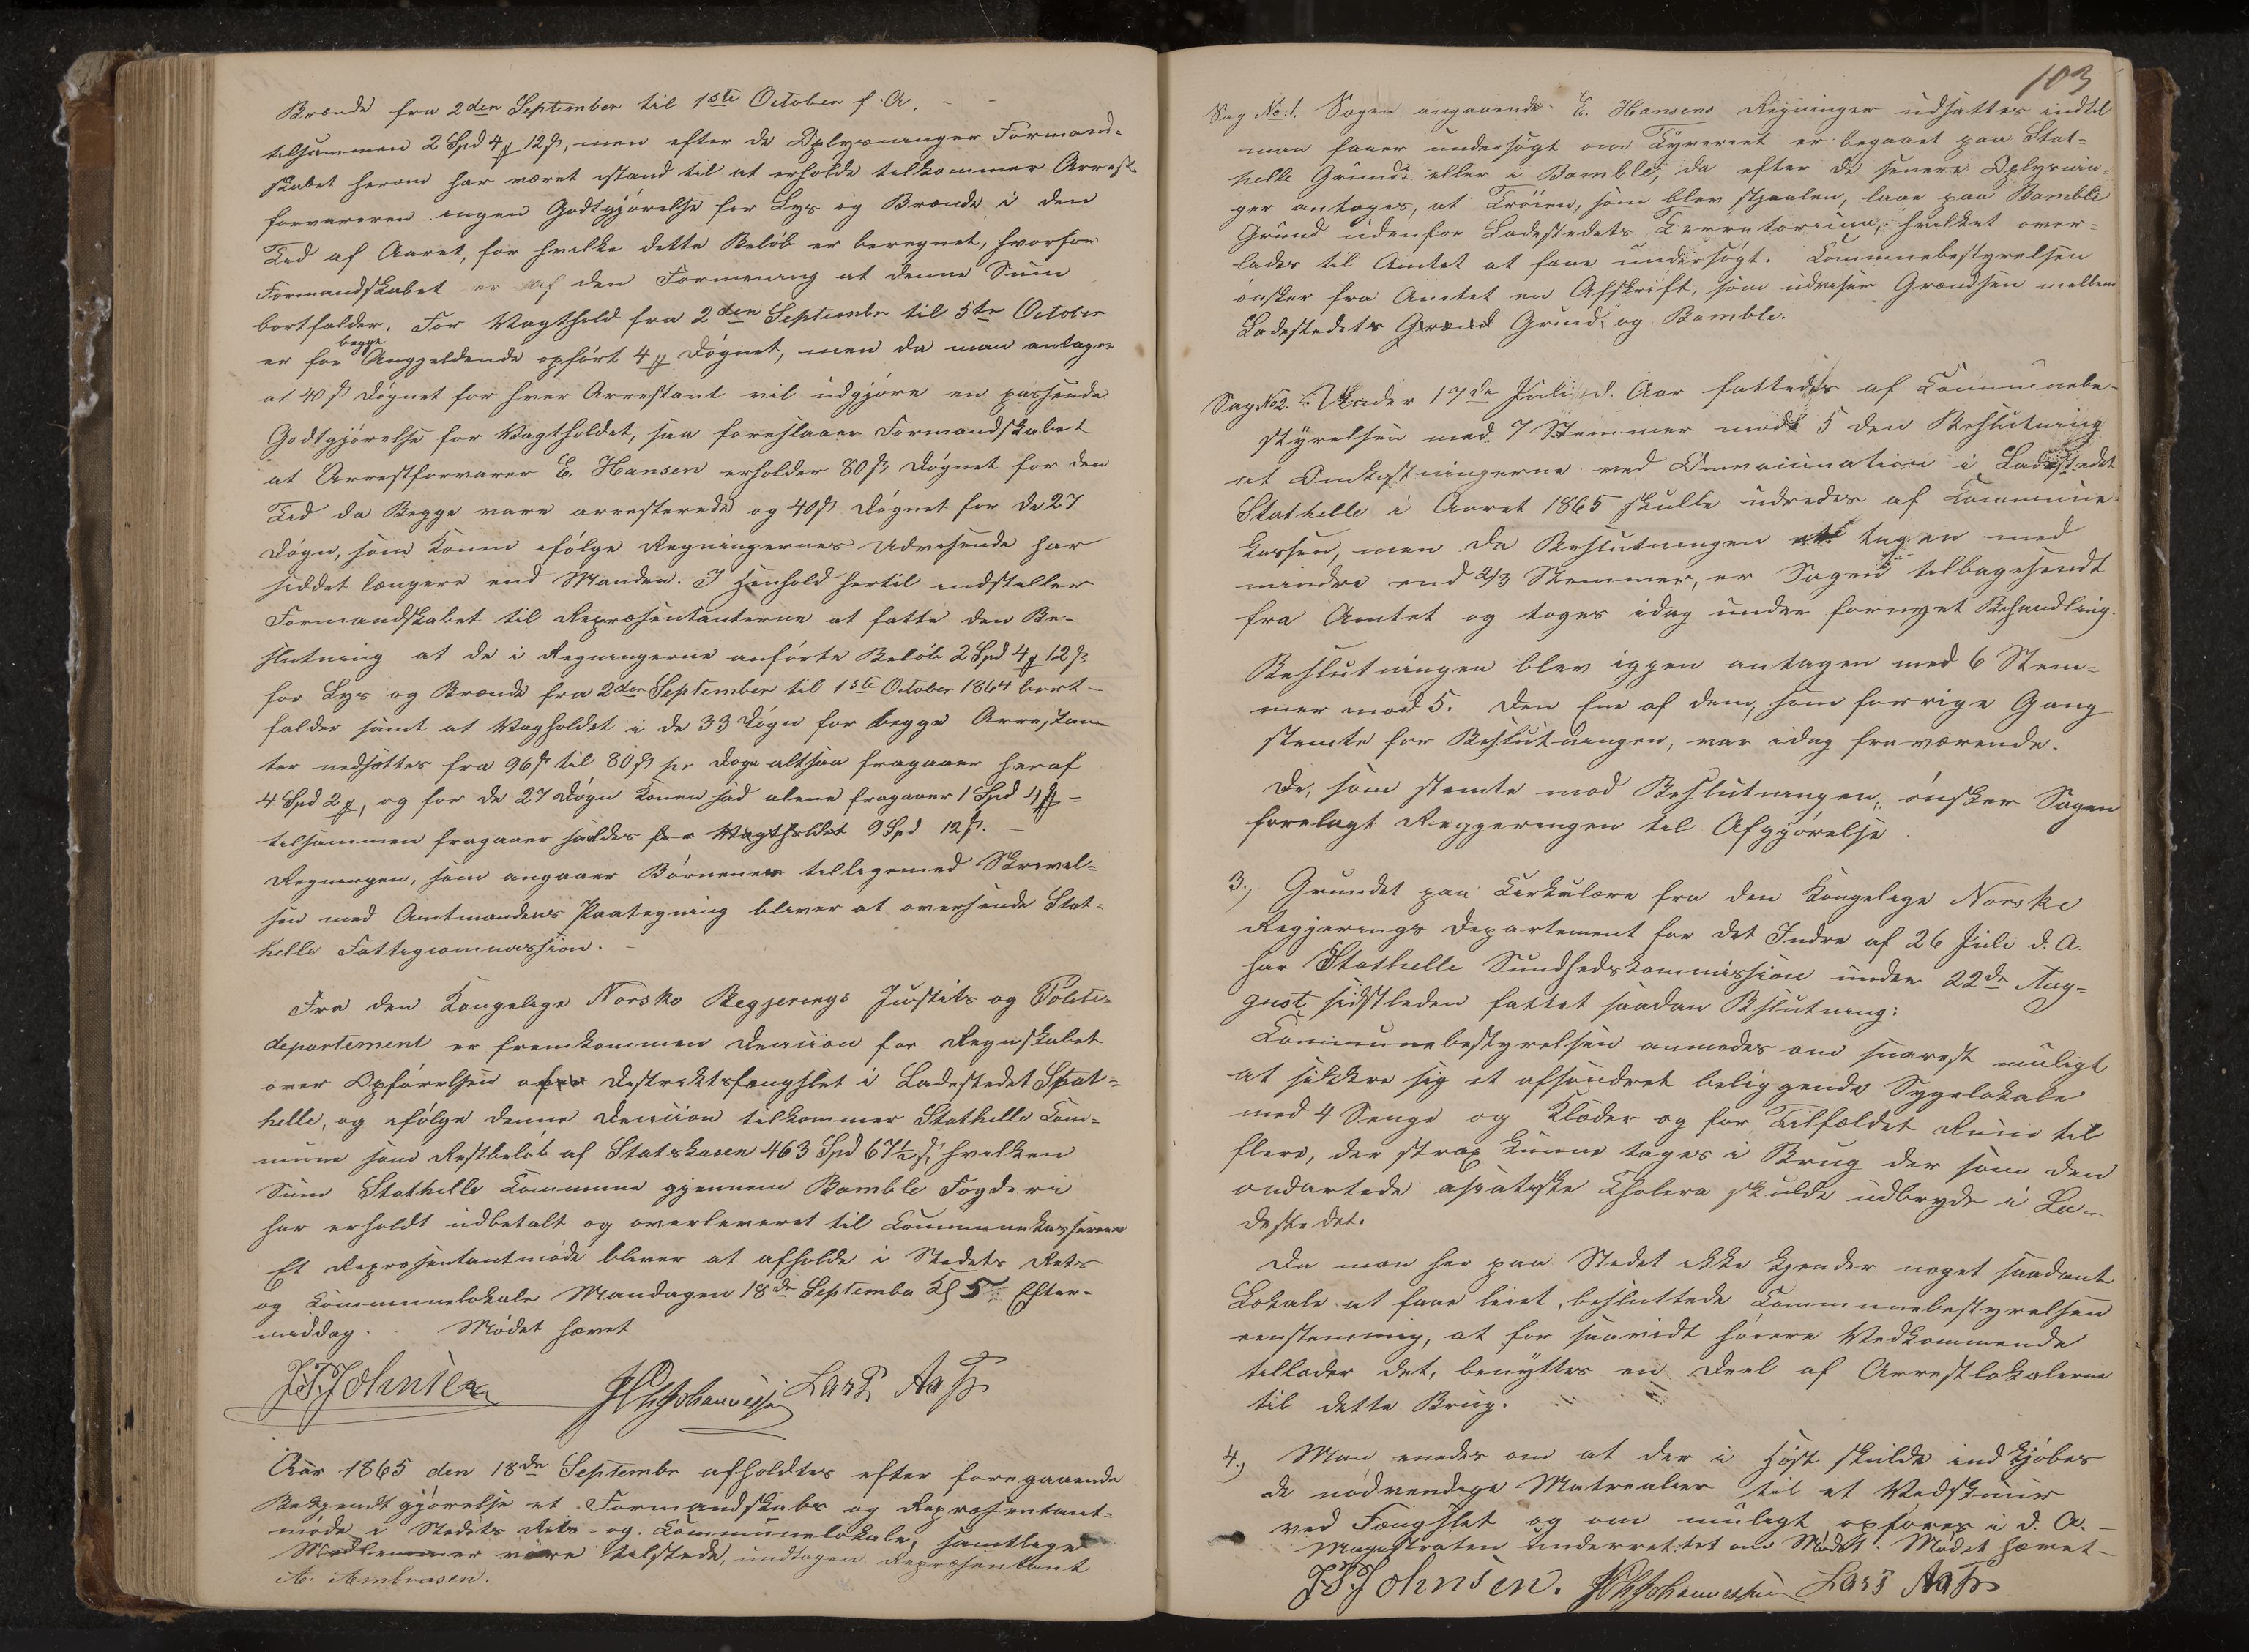 Brænde fra 2den September til 1ste October f. A. - -
tilsammen 2 Spd 4 ₰ 12 ß, men efter de Oplysninger Formand-
skabet herom har været istand til at erholde tilkommer Arrest-
forvareren ingen Godtgjørelse for Lys og Brænde i den
Tid af Aaret, for hvilke dette Beløb er beregnet, hvorfor
Formandskabet er af den Formening at denne Sum
bortfalder. For Vagthold fra 2den September til 5te October
er for begge Angjeldende opført 4 ₰ Døgnet, men da man antager
at 40 ß Døgnet for hver Arrestant vil udgjøre en passende
Godtgjørelse for Vagtholdet, saa foreslaaer Formandskabet
at Arrestforvarer E. Hansen erholder 80 ß Døgnet for den
Tid da Begge vare arresterede og 40 ß Døgnet for de 27
Døgn, som Konen ifølge Regningernes Udvisende har
siddet længere end Manden. I Henhold hertil indstiller
Formandskabet til Repræsentanterne at fatte den Be-
slutning at de i Regningerne anførte Beløb 2 Spd 4 ₰ 12 ß
for Lys og Brænde fra 2den September til 1ste October 1864 bort-
falder samt at Vagholdet i de 33 Døgn for begge Arrestan-
ter nedsættes fra 96 ß til 80 ß pr Døgn altsaa fragaaer heraf
4 Spd 2 ₰, og for de 27 Døgn Konen sad alene fragaaer 1 Spd 4 ₰ =
tilsammen fragaaer saaledes for Vagtholdet 9 Spd 12 ß. -
Regningen, som angaaer Børnenes tilligemed Skrivel-
sen med Amtmandens Paategning bliver at oversende Stat-
helle Fattigcommission. -
Fra den Kongelige Norske Regjerings Justits og Politi-
departement er fremkommen Decision for Regnskabet
over Opførelsen af Destriktsfængslet i Ladestedet Stat-
helle, og ifølge denne Decision tilkommer Stathelle Com-
mune som Restbeløb af Statskassen 463 Spd 67½ ß, hvilken
Sum Stathelle Commune gjennem Bamble Fogderi
har erholdt udbetalt og overleveret til Communekassereren
Et Repræsentantmøde bliver at afholde i Stedets Rets
og Communelokale Mandagen 18de September Kl 5 Efter-
middag. Mødet hævet
J. T. Johnsen Lars Aa
Aar 1865 den 18de Septembr afholdtes efter foregaaende
Bekjendtgjørelse et Formandskabs og Repræsentant-
møde i Stedets Rets- og Communelokale, samtlige
Medlemmer være tilstede, undtagen Repræsentant
A. Ambrosen.
103
Sag No: 1. Sagen angaaende E. Hansens Regninger udsattes indtil
man faaer undersøgt om Tyveriet er begaaet paa Stat-
helle Grund eller i Bamble, da efter de senere Oplysnin-
ger antages, at Trøien, som blev stjaalen, laae paa Bamble
Grund udenfor Ladestedets Terretorium, hvilket over-
lades til Amtet at faae undersøgt. Communebestyrelsen
ønsker fra Amtet en Afskrift, som udviser Grændsen mellem
Ladestedets Grænd Grund og Bamble.
Sag No 2. Under 17de Juli d. Aar fattedes af Communebe-
styrelsen med 7 Stemmer mod 5 den Beslutning
at Omkostningerne ved Omvaccination i Ladestedet
Stathelle i Aaret 1865 skulle udredes af Commune
kassen, men da Beslutningen tagen med
mindre end 2/3 Stemmer, er Sagen tilbagesendt
fra Amtet og toges idag under fornyet Behandling.
Beslutningen blev igjen antagen med 6 Stem-
mer mod 5. Den Ene af dem, som forrige Gang
stemte for Beslutningen, var idag fraværende.
De, som stemte mod Beslutningen, ønsker Sagen
forelagt Regjeringen til Afgjørelse.
3.) Grundet paa Cirkulære fra den Kongelige Norske
Regjerings Departement for det Indre af 26 Juli d. A.
har Stathelle Sundhedskommission under 22de Aug-
gust sidstleden fattet saadan Bslutning:
Communebestyrelsen anmodes om snarest muligt
at sikkre sig et afsondret beliggende Sygelokale
med 4 Senge og Klæder og for Tilfældet Rum til
flere, der strax kunne tages i Brug der som den
ondartede asiatiske Cholera skulde udbryde i La-
destedet.
Da man her paa Stedet ikke kjender noget saadant
Lokale at faae leiet, besluttede Communebestyrelsen
eenstemmig, at for saavidt høiere Vedkommende
tillader det, benyttes en Deel af Arrestlokalerne
til dette Brug.
4.) Man enedes om at der i Høst skulde indkjøbes
de nødvendige Matrealier til et Vedskuur
ved Fængslet og om muligt opføres i d. A. -
Magistraten underrettet om Mødet. Mødet hævet -
J. T. Johnsen. Lars Aa